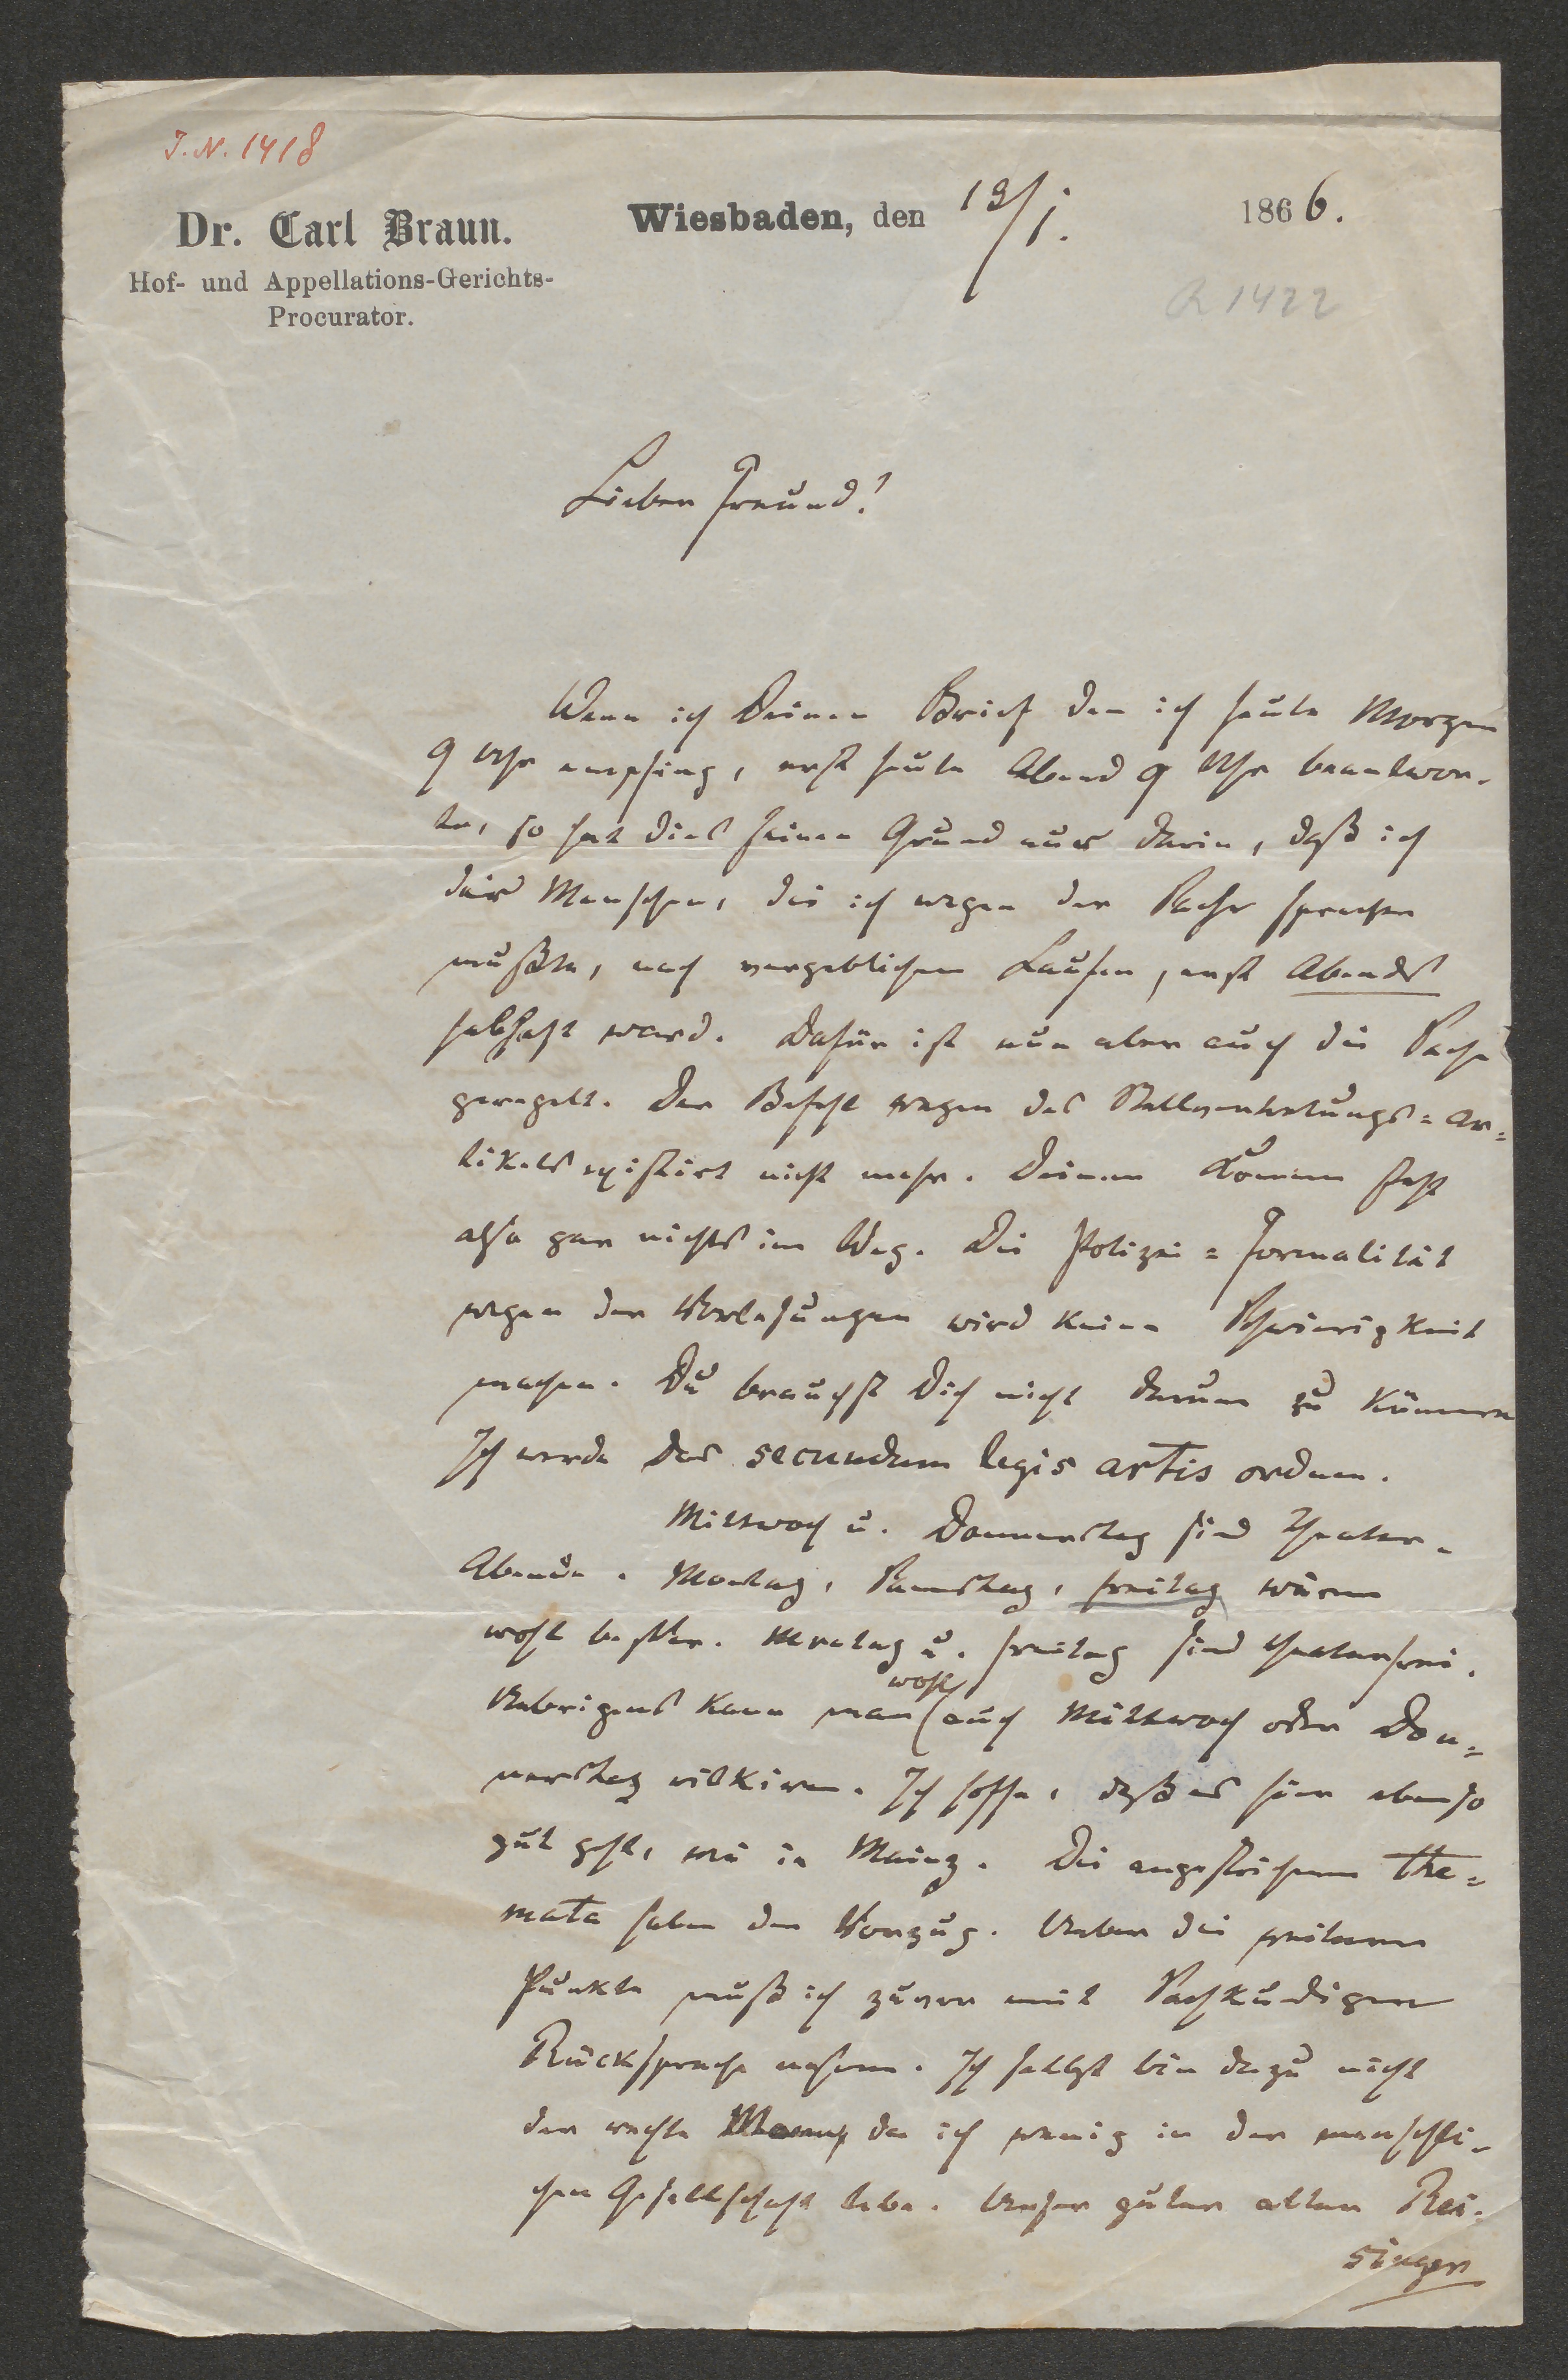 J. N. 1418
Dr. Carl Braun.
Hof- und Appellations-Gerichts-
Procurator.
Wiesbaden, den 19/1. 1866.
R 1422
Lieber Freund!
Wenn ich Deinen Brief den ich heute Morgen
9 Uhr empfing, erst heute Abend 9 Uhr beantwor-
te, so hat dies seinen Grund nur darin, daß ich
die Menschen, die ich wegen der Sache sprechen
mußte, nach vergeblichem Laufen, erst Abends
habhaft ward. Dafür ist nun aber auch die Sache
geregelt. Der Befehl wegen des Stellvertretungs=Ar=
tikels existirt nicht mehr. Deinem Kommen steht
also gar nichts im Weg. Die Polizei=Formalität
wegen der Vorlesungen wird keine Schwierigkeit
machen. Du brauchst Dich nicht darum zu kümmern
Ich werde das secundum legis artis ordnen.
Mittwoch u. Donnerstag sind Theater-
Abende. Montag, Samstag, Freitag wären
wohl besser. Montag u. Freitag sind theaterfrei.
Uebrigens kann man wohl auch Mittwoch oder Don=
nerstag riskiren. Ich hoffe, daß es hier ebenso
gut geht, wie in Mainz. Die angestrichenen The=
mata haben den Vorzug. Ueber die weiteren
Punkte muß ich zuvor mit Sachkundigen
Rücksprache nehmen. Ich selbst bin dazu nicht
der rechte Mann, da ich wenig in der menschli-
chen Gesellschaft lebe. Unser guter alter Rei-
singer